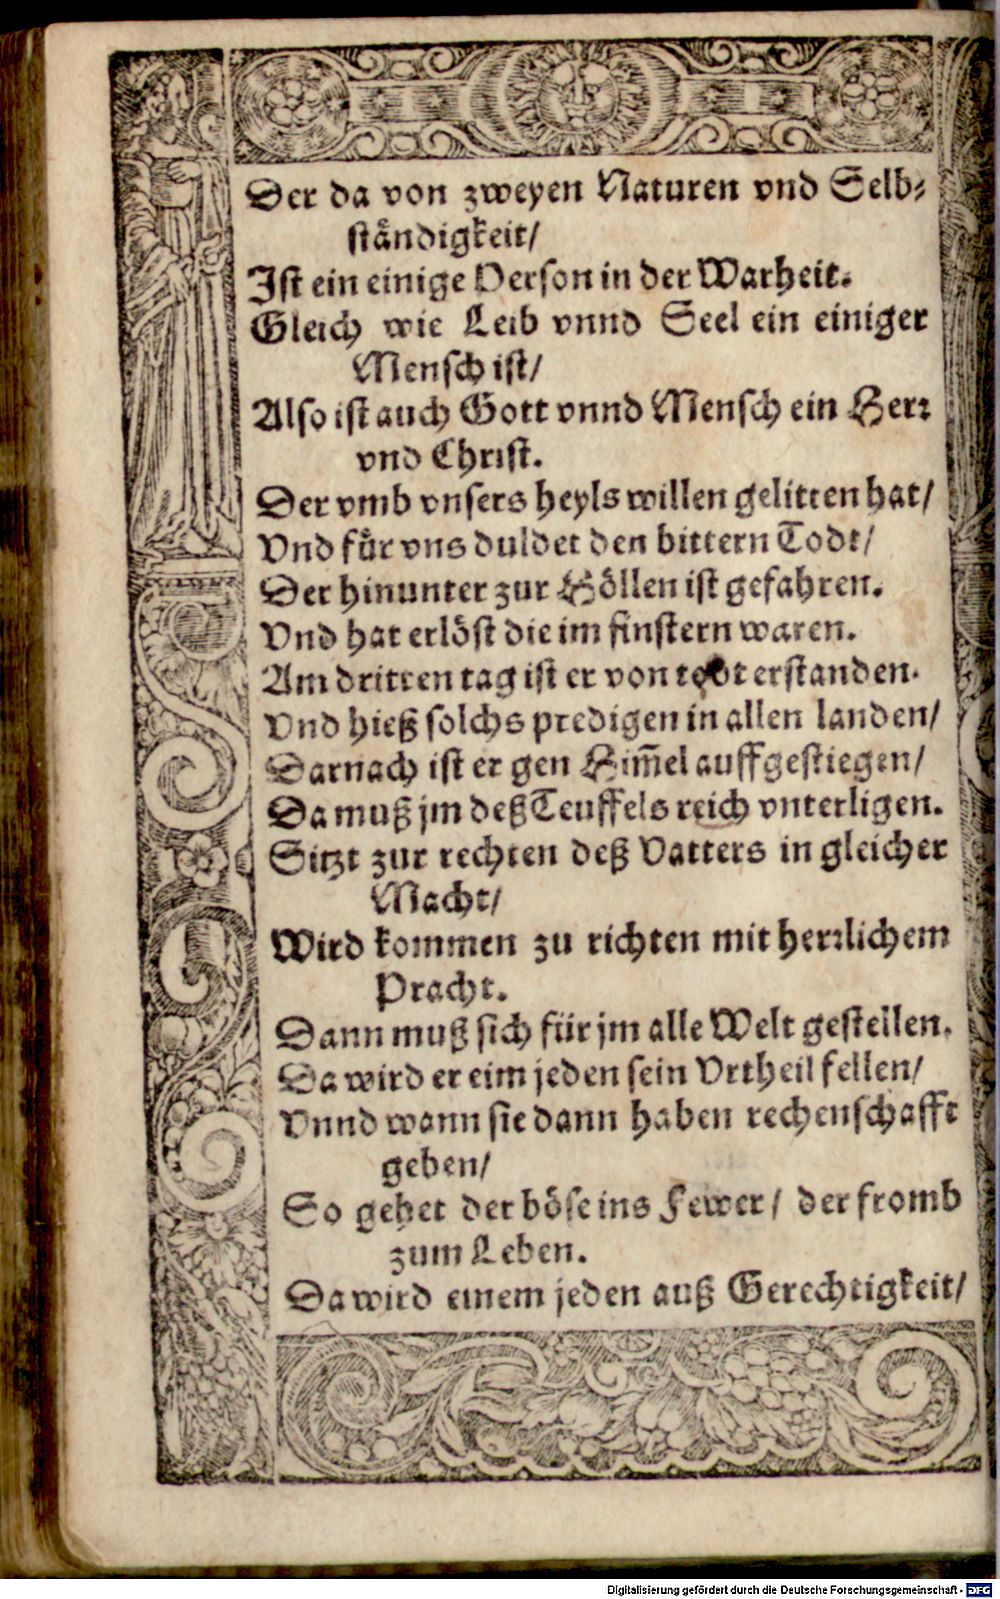 Der da von zweyen Naturen vnd Selb⸗
ständigkeit/
Ist ein einige Person in der Warheit.
Gleich wie Leib vnnd Seel ein einiger
Mensch ist/
Also ist auch Gott vnnd Mensch ein Herr
vnd Christ.
Der vmb vnsers heyls willen gelitten hat/
Vnd für vns duldet den bittern Todt/
Der hinunter zur Höllen ist gefahren.
Vnd hat erlöst die im finstern waren.
Am dritten tag ist er von todt erstanden.
Vnd hieß solchs predigen in allen landen/
Darnach ist er gen Him̄el auffgestiegen/
Da muß jm deß Teuffels reich vnterligen.
Sitzt zur rechten deß Vatters in gleicher
Macht/
Wird kommen zu richten mit herrlichem
Pracht.
Dann muß sich für jm alle Welt gestellen.
Da wird er eim jeden sein Vrtheil fellen/
Vnnd wann sie dann haben rechenschafft
geben/
So gehet der böse ins Fewer/ der fromb
zum Leben.
Da wird einem jeden auß Gerechtigkeit/
Digitalisierung gefördert durch die Deutsche Forschungsgemeinschaft - DFG